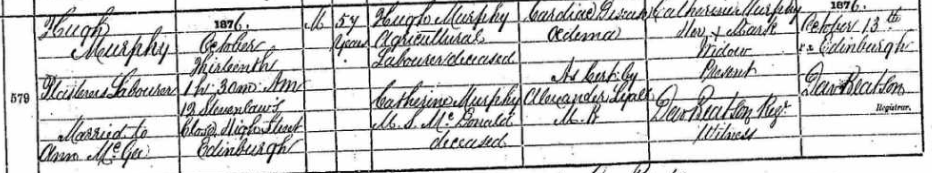 579
Hugh
Murphy
Plasterers Labourer
Married to
Ann McGee
1876.
October
Thirteenth
1h. 30m. AM
13 Stevenlaw's
Close, High Street
Edinburgh
M
57
Years
Hugh Murphy
Agricultural
Labourer deceased
Catherine Murphy
M.S. McDonald
deceased
Cardiac Disease
Oedema
As Cert by
Alexander
M.D.
Catherine Murphy
Her x Mark
Widow
Present
Dav Beatson Regr
Witness
1876.
October 13th
Edinburgh
Dav Beatson
Registrar.